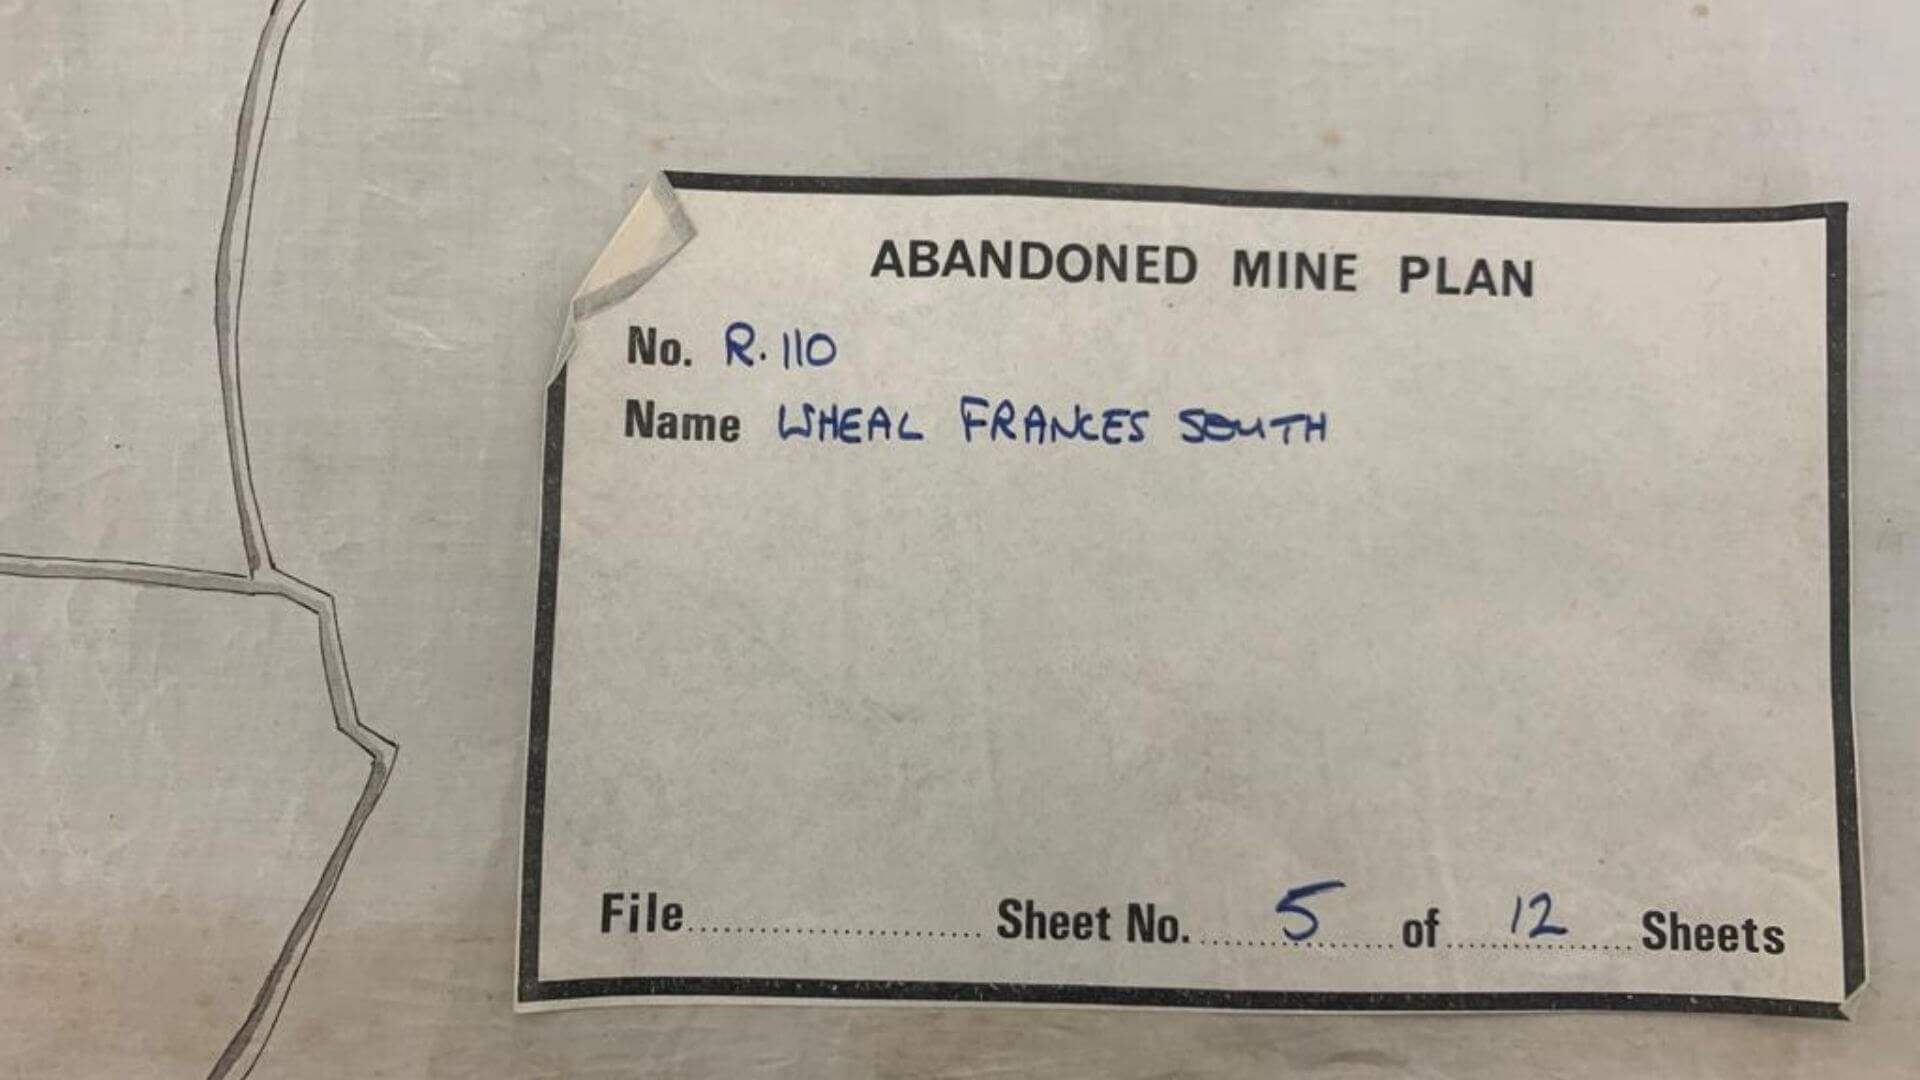 ABANDONED MINE PLAN
No. R.110
Name WHEAL FRANCES SOUTH
File........................ Sheet No. 5 of 12 Sheets